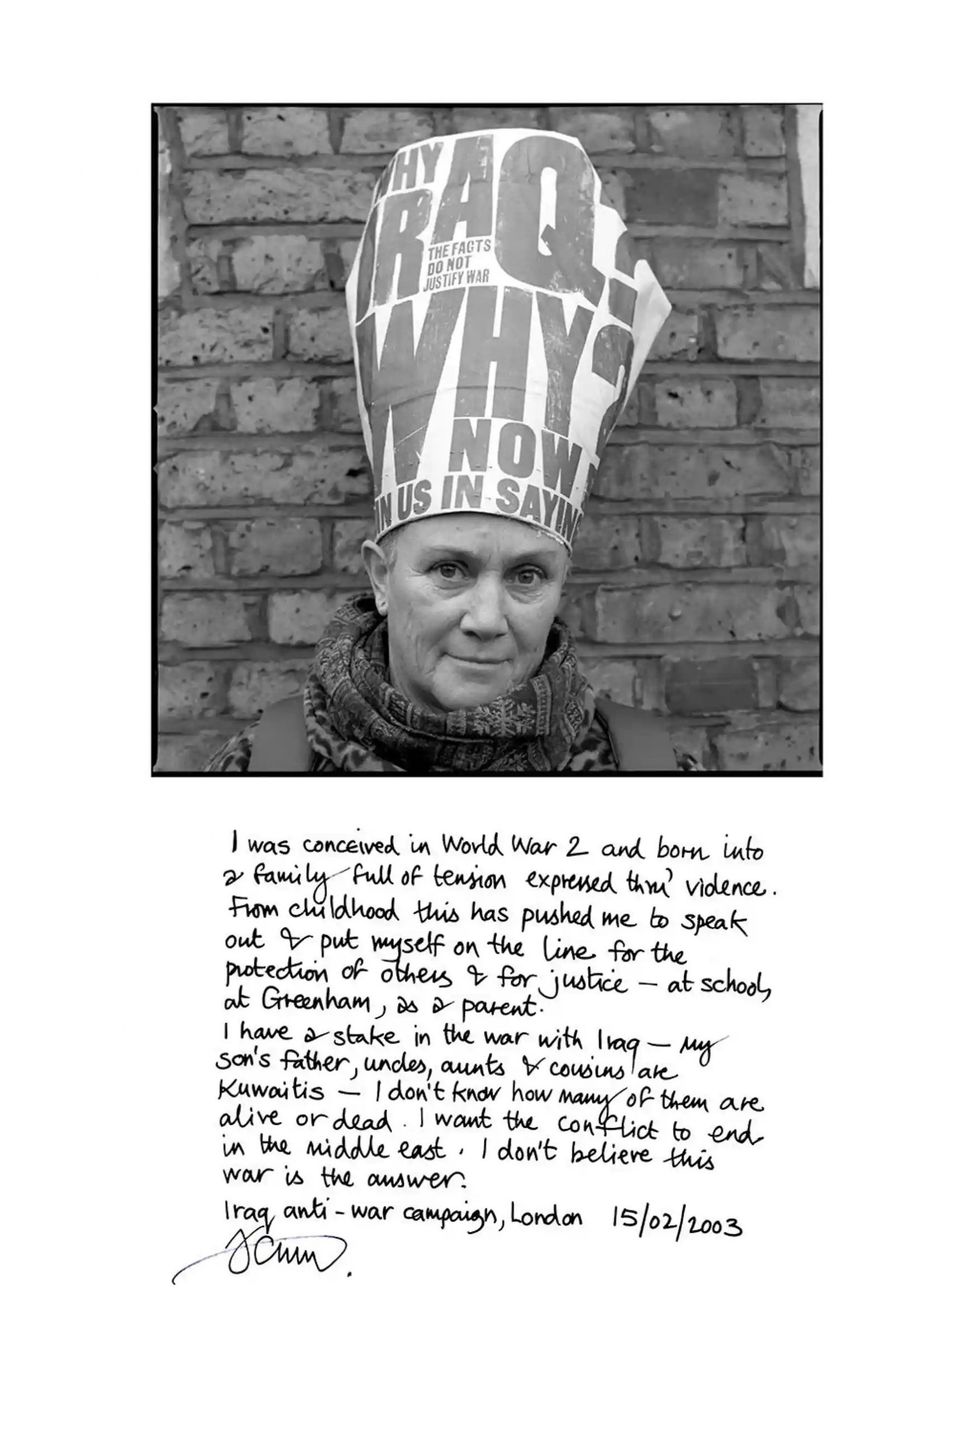 WHY
IRAQ?
THE FACTS
DO NOT
JUSTIFY WAR
WHY?
NOW
IN US IN SAYIN
I was conceived in World War 2 and born into
a family full of tension expressed thru' violence.
From childhood this has pushed me to speak
out & put myself on the line for the
protection of others & for justice – at school,
at Greenham, as a parent.
I have a stake in the war with Iraq – my
son's father, uncles, aunts & cousins are
Kuwaitis – I don't know how many of them are
alive or dead. I want the conflict to end
in the middle east. I don't believe this
war is the answer.
Iraq anti-war campaign, London 15/02/2003